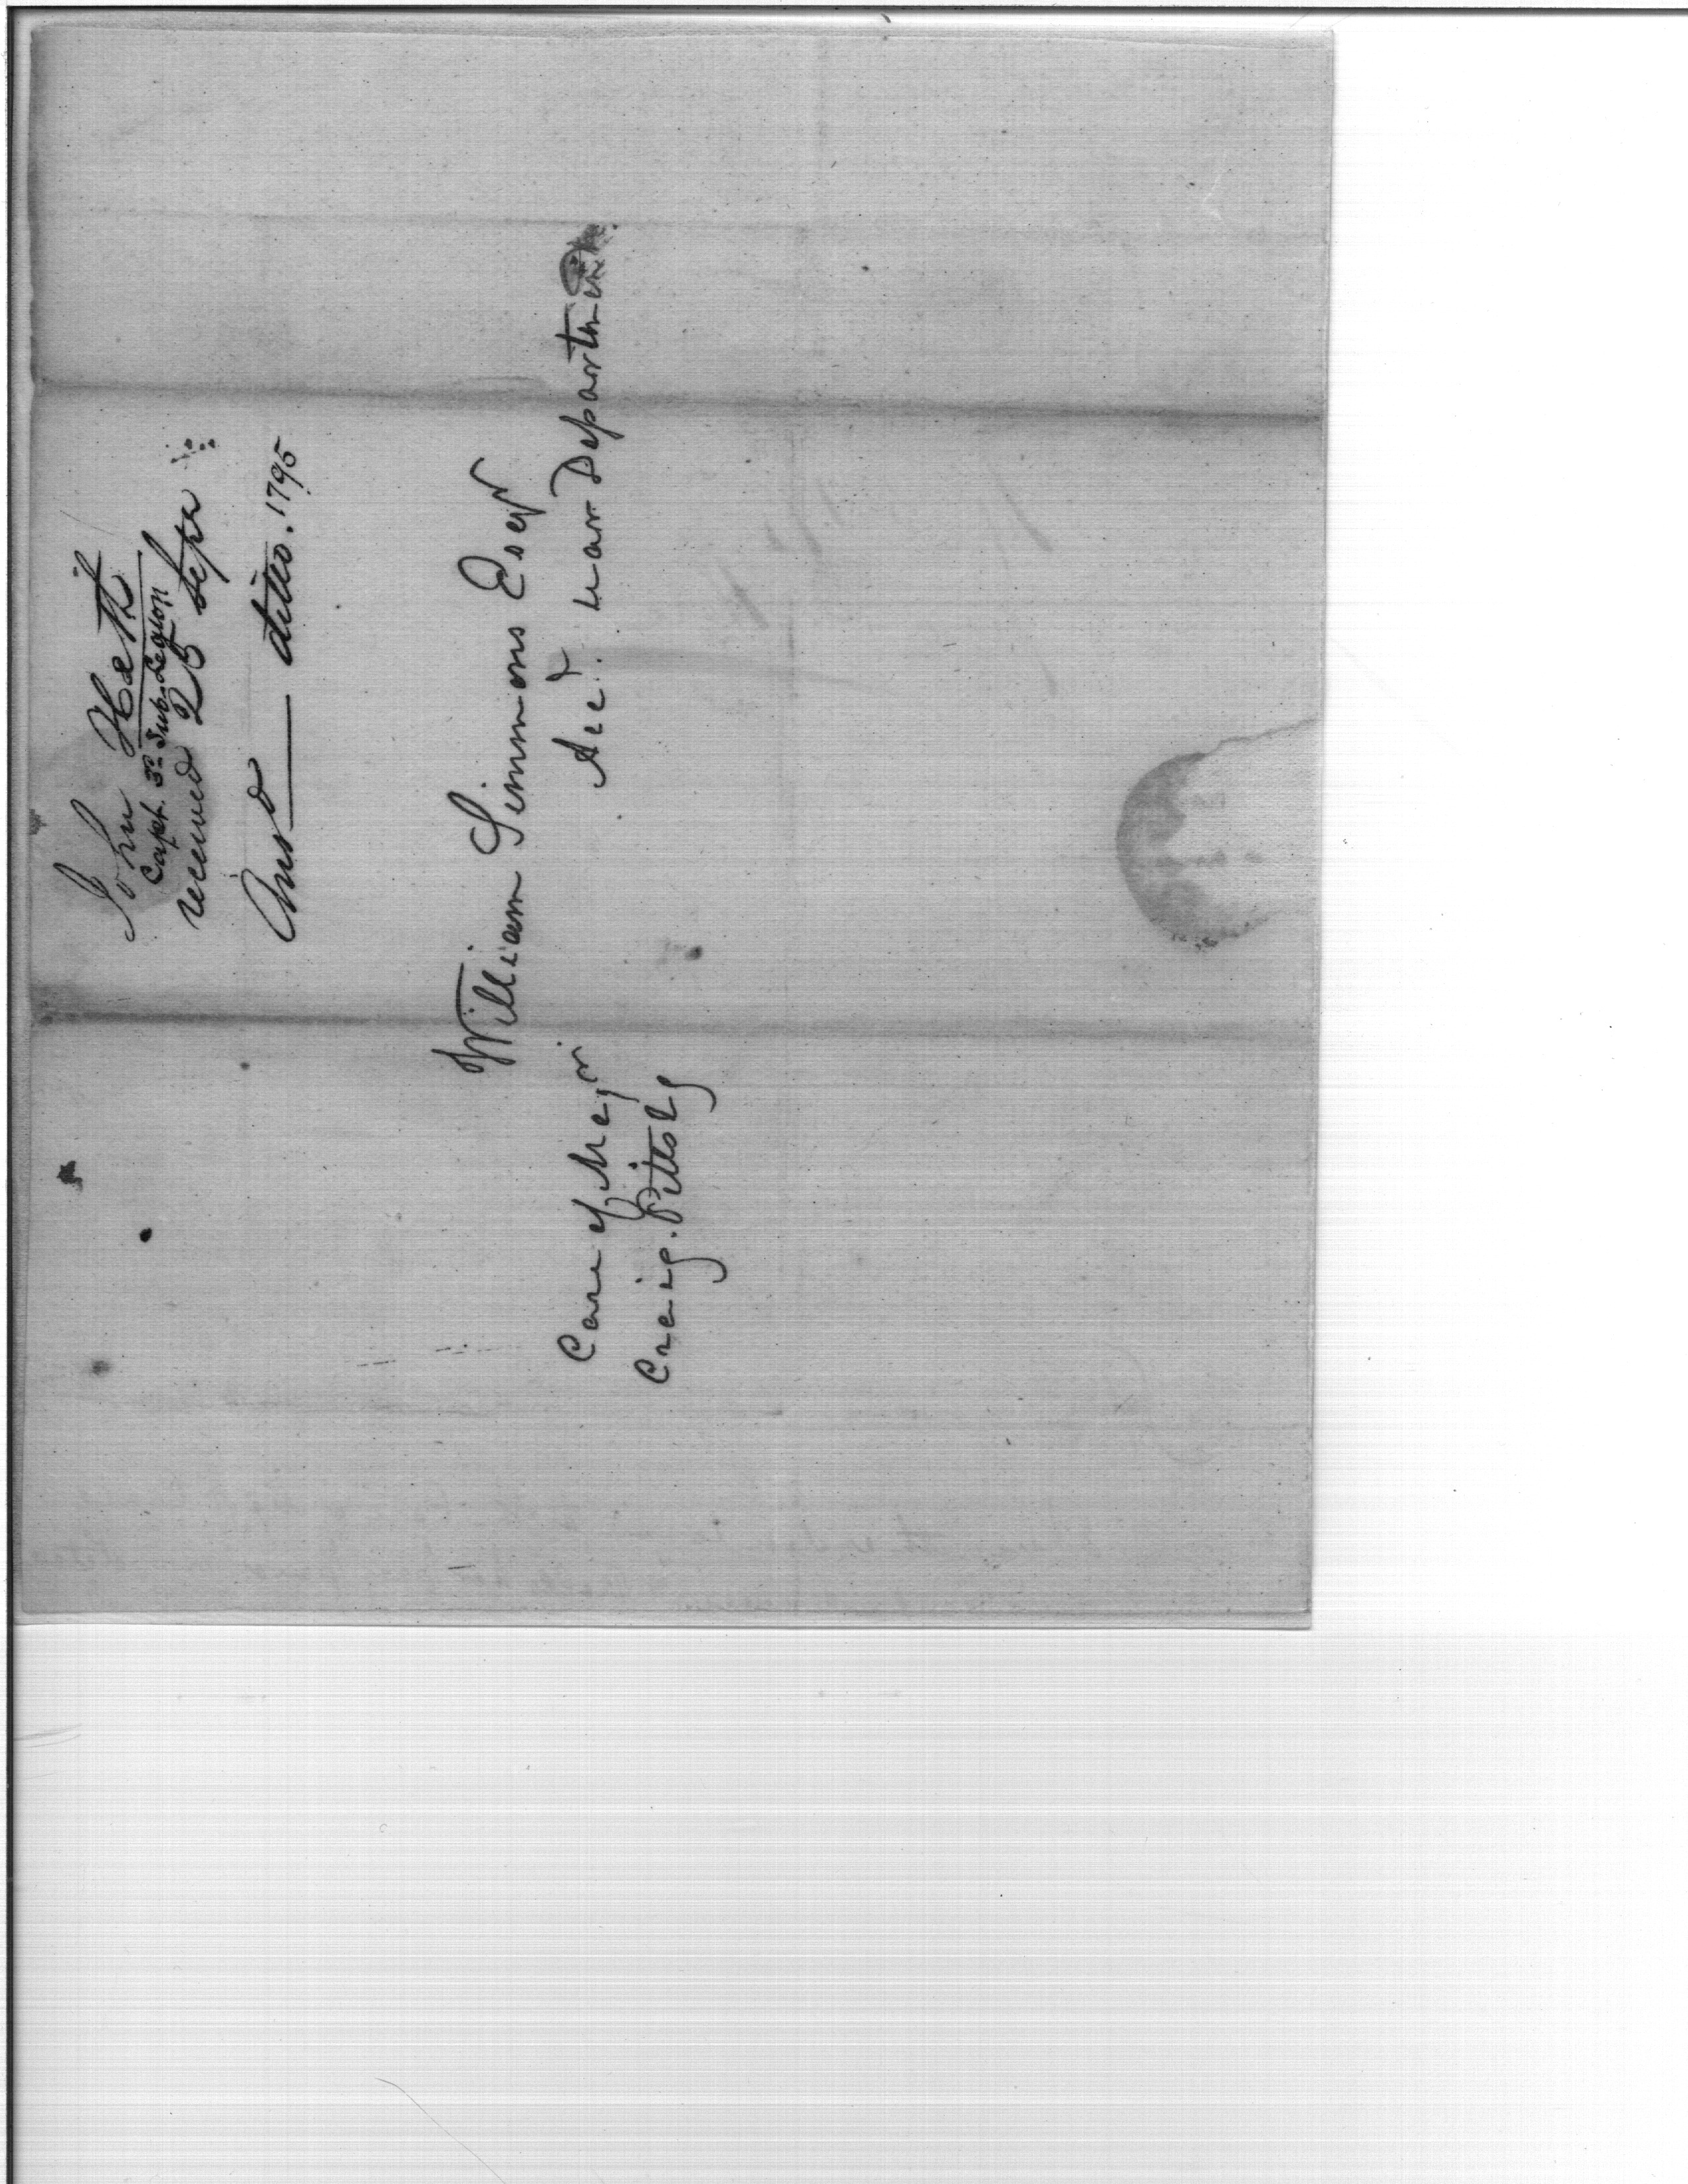 John Heth
Capt. 3d Sub-Legion
received 25 Sepr
Ansd — ditto. 1795
William Simmons Esqr
Acct. War Department
Care of Majr
Craig. Pittsbg